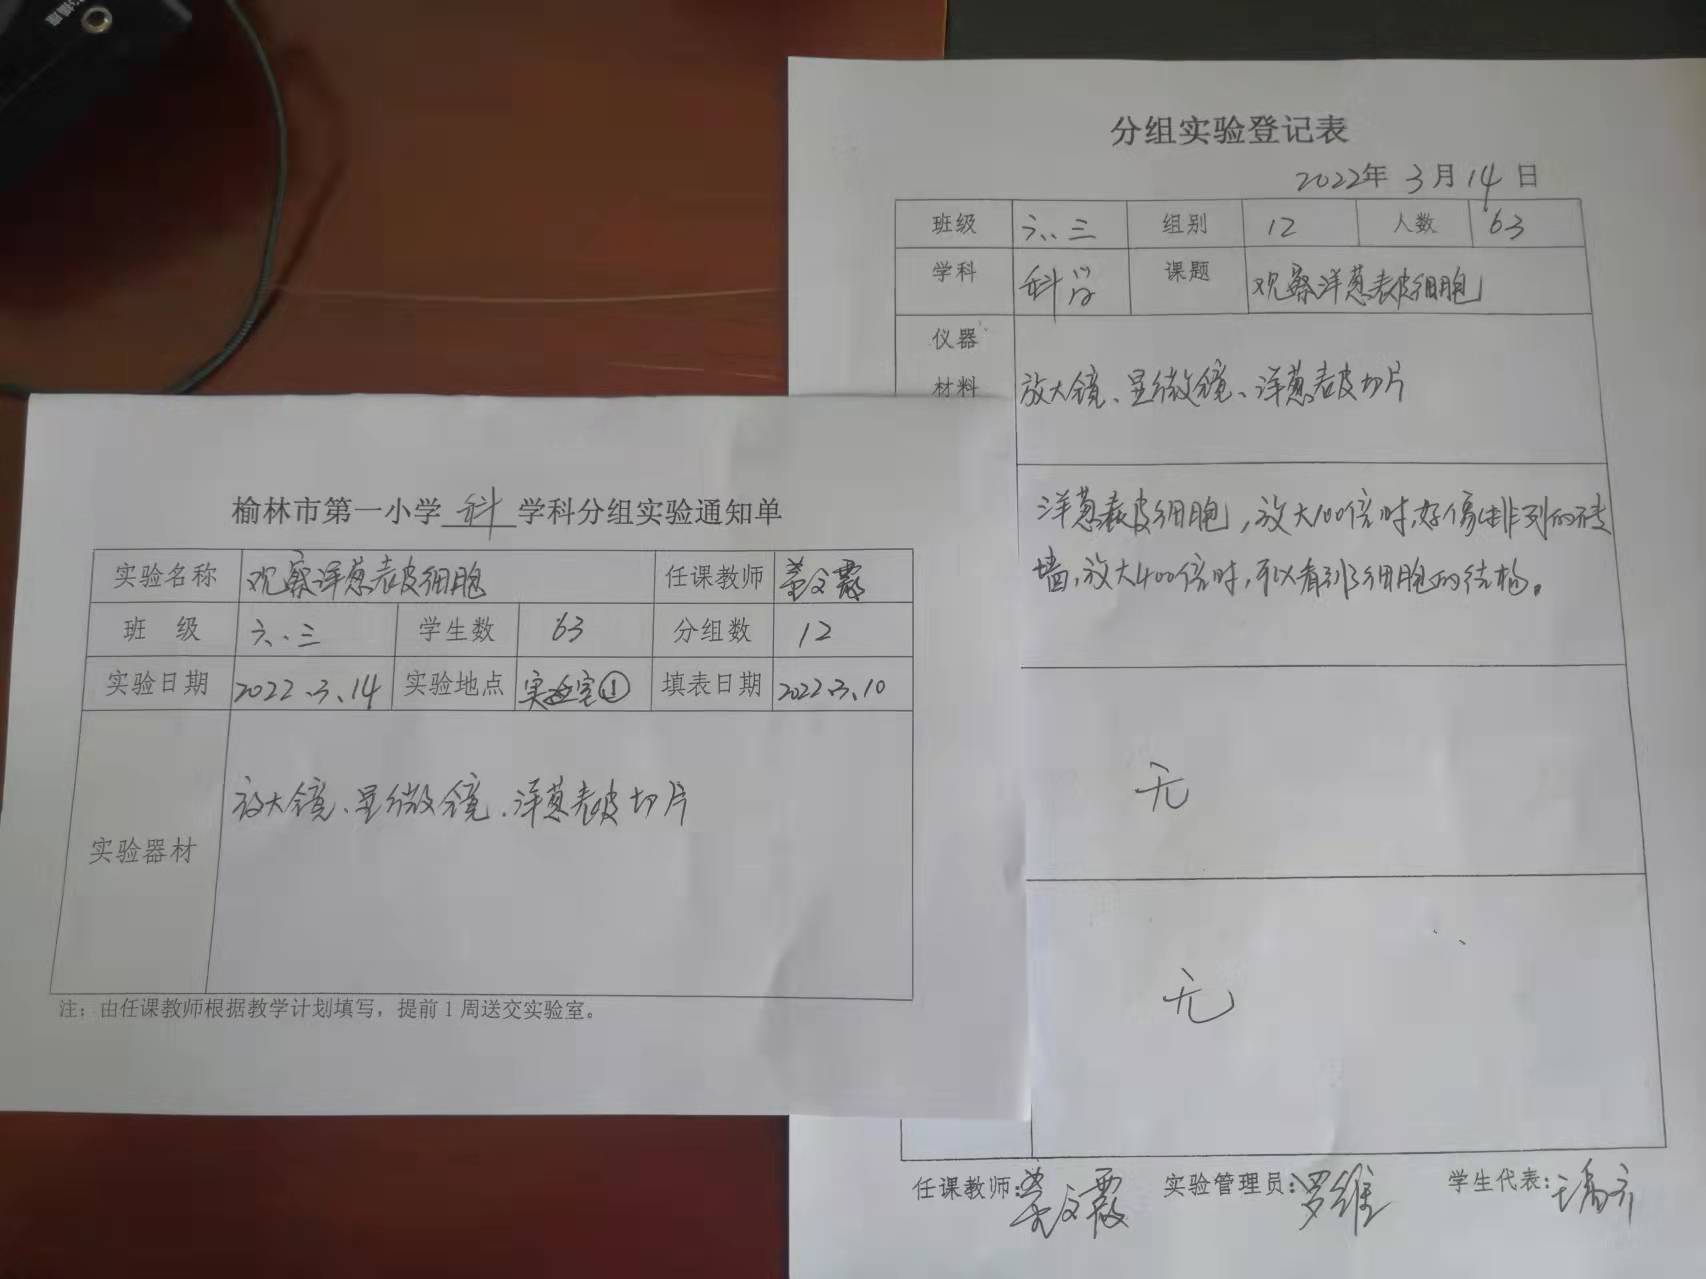 榆林市第一小学 科 学科分组实验通知单
实验名称 观察洋葱表皮细胞 任课教师
班 级 六.三 学生数 63 分组数 12
实验日期 2022.3.14 实验地点 实验室① 填表日期 2022.3.10
实验器材 放大镜、显微镜、洋葱表皮切片
注：由任课教师根据教学计划填写，提前1周送交实验室。
分组实验登记表
2022年 3月14日
班级 六.三 组别 12 人数 63
学科 科学 课题 观察洋葱表皮细胞
仪器
材料 放大镜、显微镜、洋葱表皮切片
洋葱表皮细胞，放大100倍时，好像排列的砖
墙，放大400倍时，可以看到细胞的结构。
无
无
任课教师： 实验管理员：罗维 学生代表：